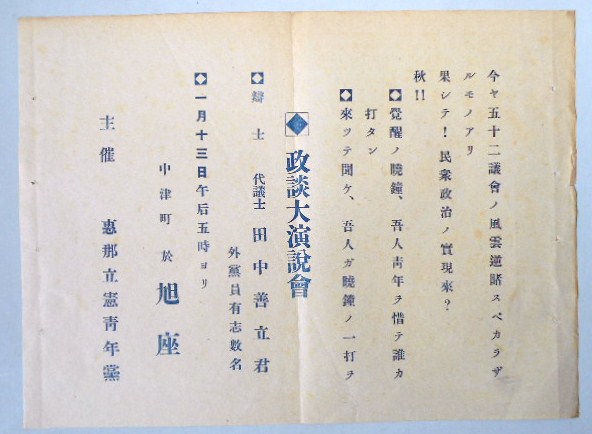 今ヤ五十二議會ノ風雲逆睹スベカラザ
ルモノアリ
果シテ！民衆政治ノ實現來？
秋！！
◆覺醒ノ曉鐘、吾人靑年ヲ惜テ誰カ
打タン
◆來ツテ聞ケ、吾人ガ曉鐘ノ一打ヲ
◆政談大演說會
◆辯士 代議士 田中善立君
外黨員有志數名
◆一月十三日午后五時ヨリ
中津町於 旭座
主催 惠那立憲靑年黨